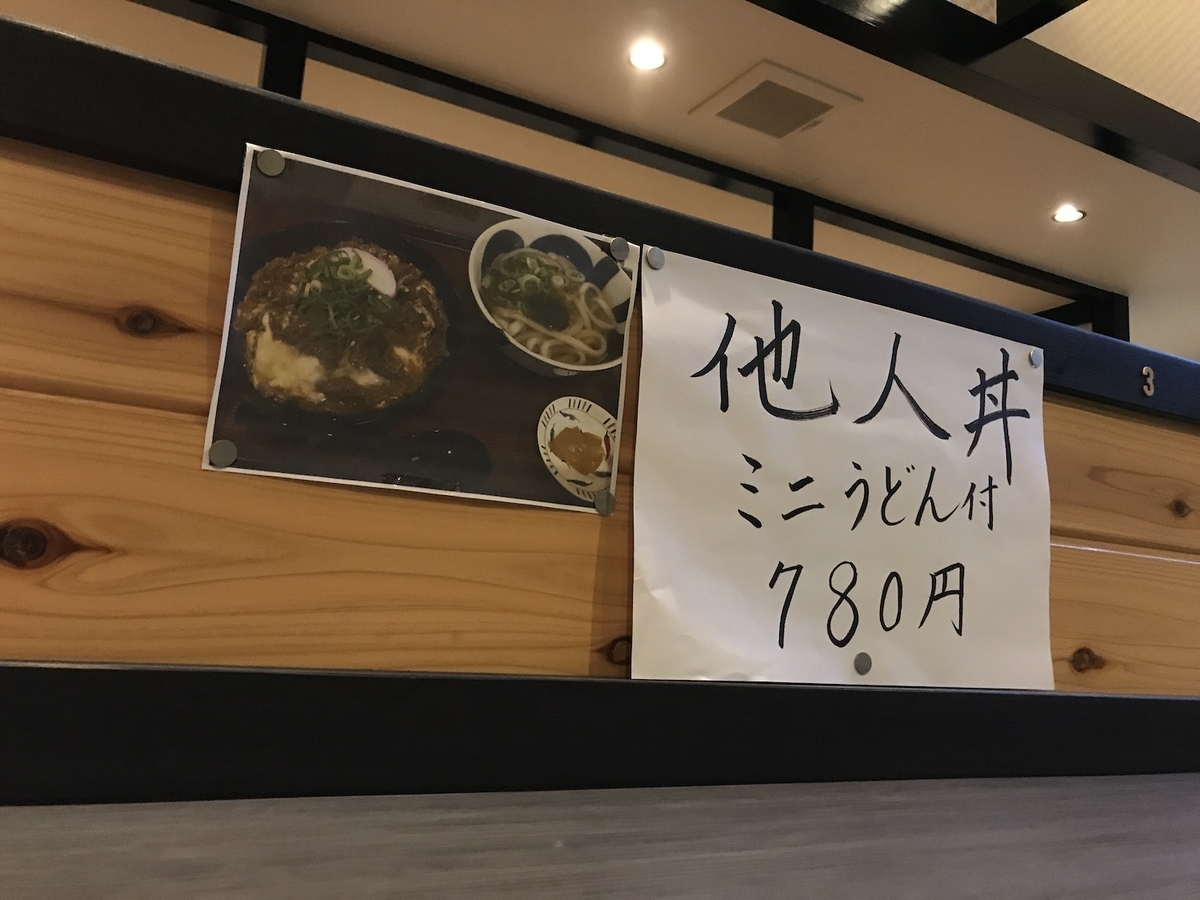 他人丼
ミニうどん付
780円
3